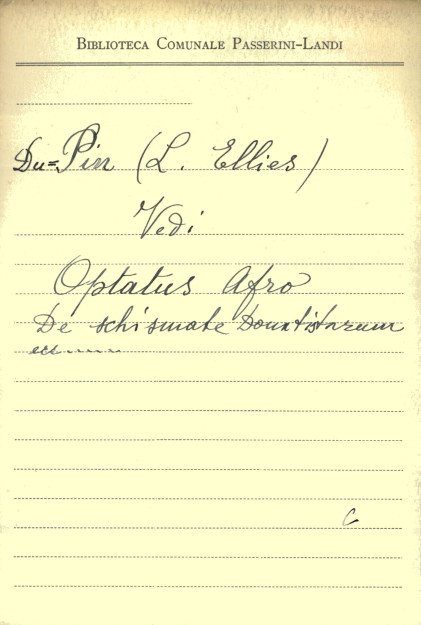 BIBLIOTECA COMUNALE PASSERINI-LANDI
Du=Pin (L. Ellies)
Vedi
Optatus Afro
De schismate Donatistarum
ecc
C